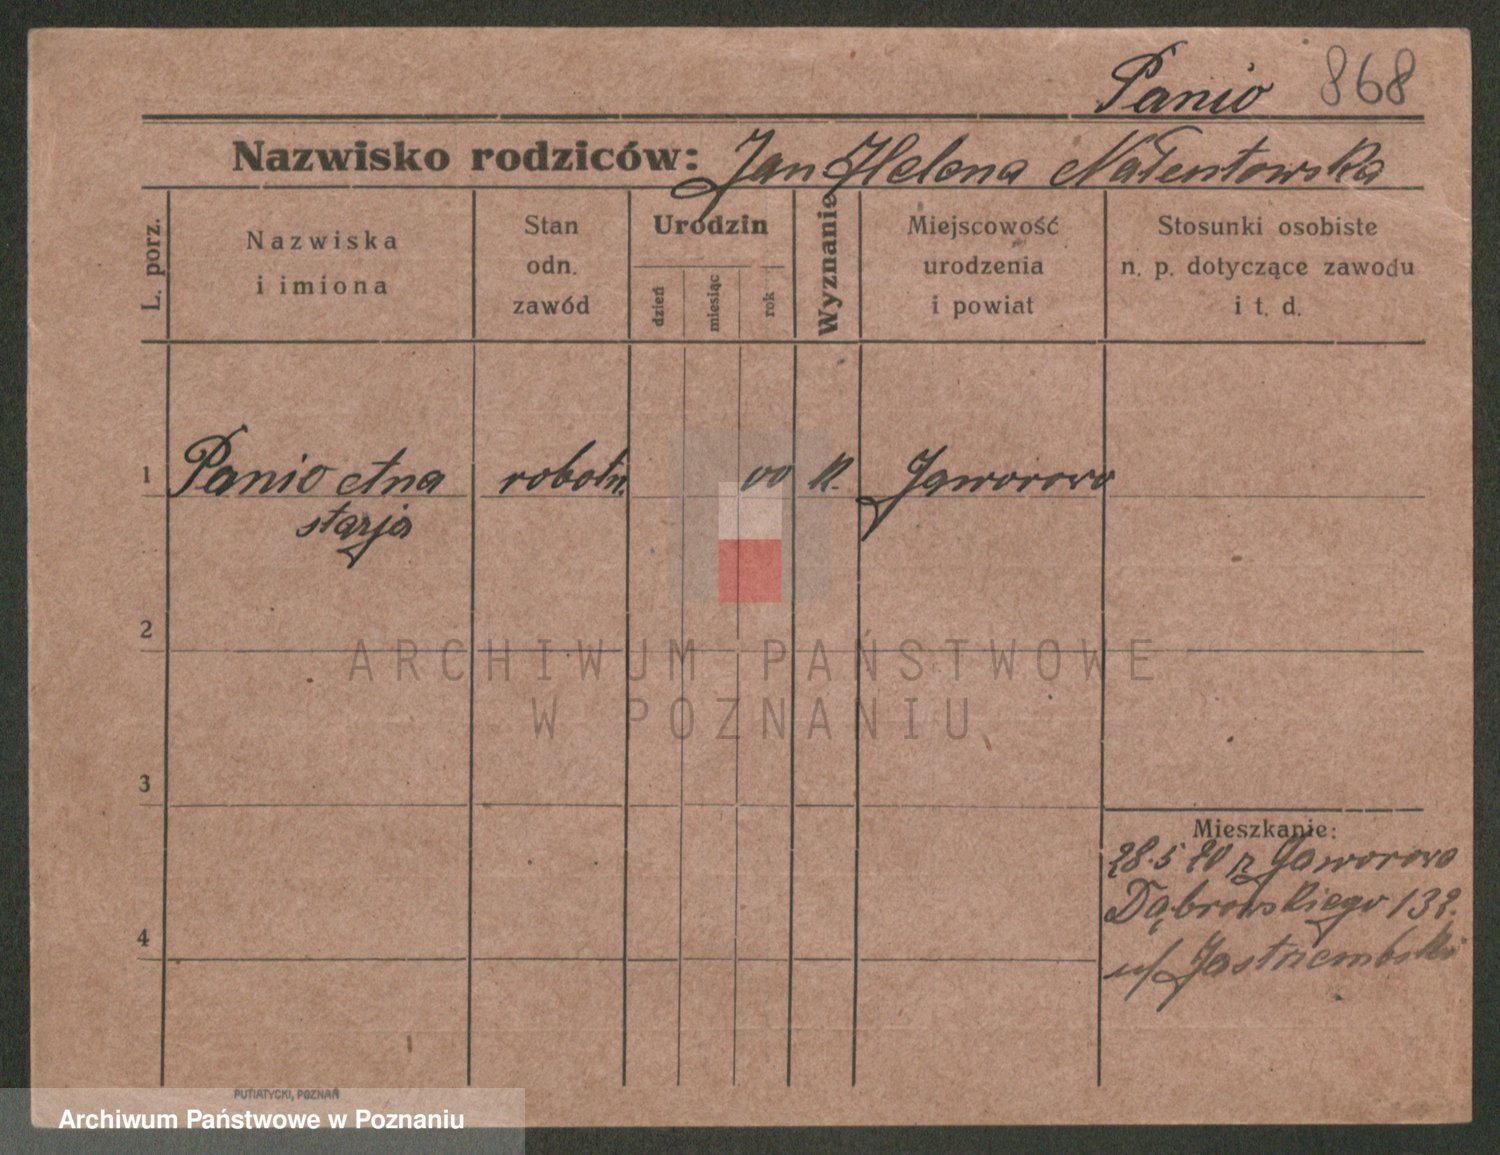 Panio 868
Nazwisko rodziców: Jan Helena Nałentowska
L. porz.
Nazwiska i imiona
Stan odn. zawód
Urodzin
dzień miesiąc rok
Wyznanie
Miejscowość urodzenia i powiat
Stosunki osobiste n. p. dotyczące zawodu i t. d.
1 Panio Anna robotn. 00 k. Jaworowo
starja
2
3
4
Mieszkanie:
28.5 20 z Jaworowa
Dąbrowskiego 132.
u/ Jastrzembski
PUTIATYCKI, POZNAŃ
ARCHIWUM PAŃSTWOWE
W POZNANIU
Archiwum Państwowe w Poznaniu